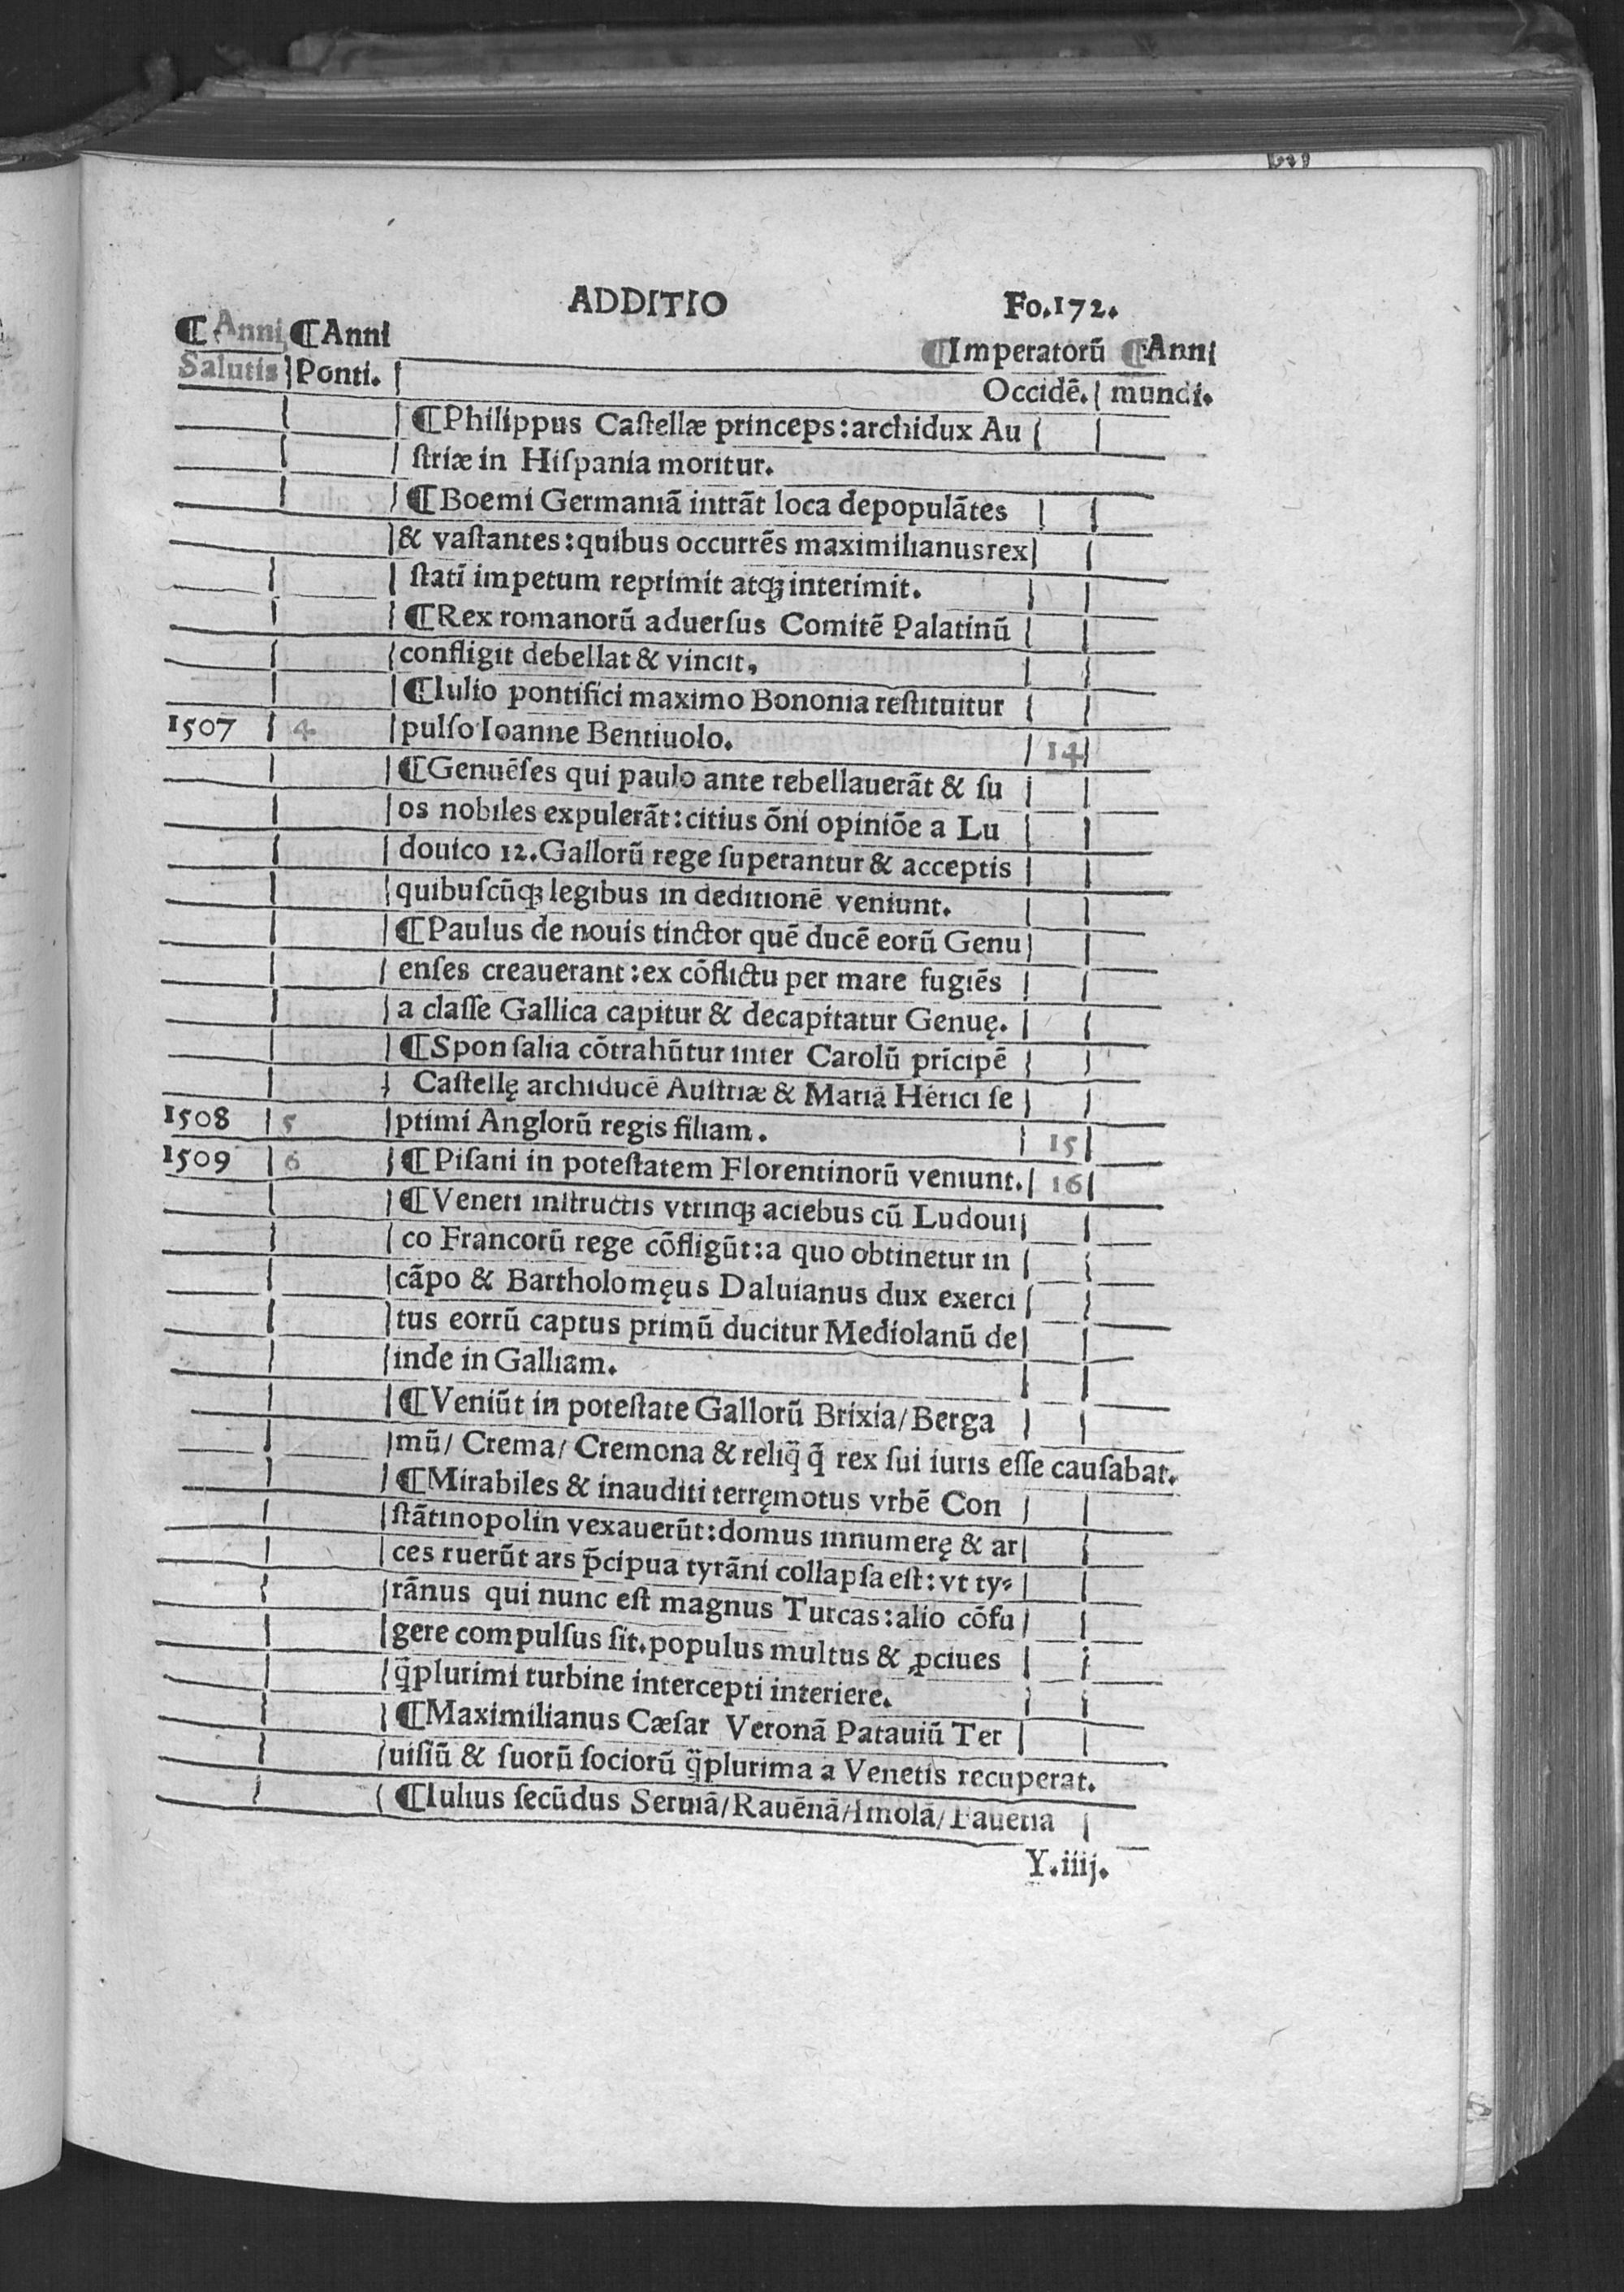 ADDITIO Fo.172.
¶ Anni ¶ Anni ¶Imperatorũ ¶Anni
Salutis Ponti. Occidẽ. mundi.
¶Philippus Caſtellæ princeps:archidux Au
ſtriæ in Hiſpania moritur.
¶Boemi Germaniã intrãt loca depopulãtes
& vaſtantes:quibus occurrẽs maximilianusrex
ſtatĩ impetum reprimit atqꝫ interimit.
¶Rex romanorũ aduerſus Comitẽ Palatinũ
confligit debellat & vincit,
¶Iulio pontifici maximo Bononia reſtituitur
1507 4 pulſo Ioanne Bentiuolo. 14
¶Genuẽſes qui paulo ante rebellauerãt & ſu
os nobiles expulerãt:citius õni opiniõe a Lu
douico 12.Gallorũ rege ſuperantur & acceptis
quibuſcũqꝫ legibus in deditionẽ veniunt.
¶Paulus de nouis tinctor quẽ ducẽ eorũ Genu
enſes creauerant:ex cõflictu per mare fugiẽs
a claſſe Gallica capitur & decapitatur Genuę.
¶Sponſalia cõtrahũtur inter Carolũ prĩcipẽ
Caſtellę archiducẽ Auſtriæ & Mariã Hẽrici ſe
1508 5 ptimi Anglorũ regis filiam. 15
1509 6 ¶Piſani in poteſtatem Florentinorũ veniunt. 16
¶Veneti inſtructis vtrinqꝫ aciebus cũ Ludoui
co Francorũ rege cõfligũt:a quo obtinetur in
cãpo & Bartholomęus Daluianus dux exerci
tus eorrũ captus primũ ducitur Mediolanũ de
inde in Galliam.
¶Veniũt in poteſtate Gallorũ Brixia/Berga
mũ/ Crema/ Cremona & reliq̃ q̃ rex ſui iuris eſſe cauſabat.
¶Mirabiles & inauditi terręmotus vrbẽ Con
ſtãtinopolin vexauerũt:domus innumerę & ar
ces ruerũt ars p̃cipua tyrãni collapſa eſt:vt ty⸗
rãnus qui nunc eſt magnus Turcas:alio cõfu
gere compulſus ſit.populus multus & ꝓciues
q̃plurimi turbine intercepti interiere.
¶Maximilianus Cæſar Veronã Patauiũ Ter
uiſiũ & ſuorũ ſociorũ q̃plurima a Venetis recuperat.
¶Iulius ſecũdus Seruiã/Rauẽnã/Imolã/Fauẽtia
Y.iiij.